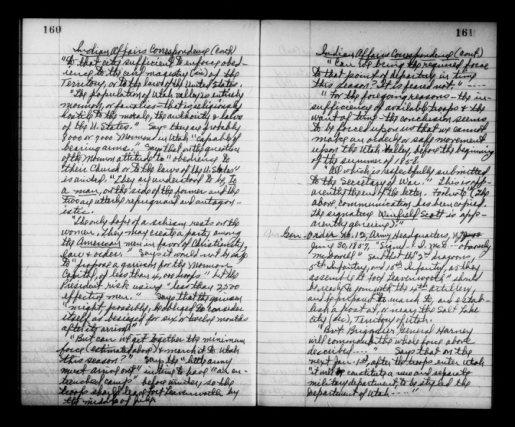 160
Indian Affairs Correspondence (cont)
"To that city sufficient to enforce obed-
ience to the civil magistry (sic) of the
Territory, or to the laws of the United States.
"The population of Utah valley is entirely
mormon, or fanatics - that is religiously
hostile to the morals, the authority & laws
of the U. States." Says they are probably
8000 or 9000 Mormons in Utah "capable of
bearing arms." Says that with question
of the Mormon attitude to "obedience to
their Church or to the laws of the U States"
is united. "They are understood to be to
a man, on the side of the former and the
two are utterly repugnant and antagon-
istic.
"The only hope of a schism rests on the
women. They may create a party among
the American men in favor of Christianity,
law & order." Says it would not be safe
to "propose a garrison for the Mormon
Capital, of less than 4,000 rank" & the
President risk using "less than 2500
effective men." Says that the garrison
"might, possibly, be obliged to consider
itself as besieged for six or twelve months
after its arrival"
"But can we get together the minimum
force (estimated above) & march it to Utah
this season?" Says the "little army
must arrive out" in time to have "an en-
trenched camp" before winter, so the
troops should leave Fort Leavenworth by
the middle of June
161
Indian Affairs Correspondence (cont)
"Can we bring the required force
to that point of departure in time
this season? It is feared not."
"For the foregoing reasons - the in-
sufficiency of available troops & the
want of time - the conclusion seems
to be forced upon us that we cannot
make an orderly or safe movement
upon the Utah Valley before the beginning
of the summer of 1858.
"All which is respectfully submitted
to the Secretary of War." This is app-
arently the end of the letter. Footnote "The
above communication has been copied.
the signature Winfield Scott is app-
arently genuine."
Gen. Order No. 12, Army Headquarters,
June 30, 1857, Signed I. McD
McDowell" Says that the 2nd dragoons,
5th Infantry, and 10th Infantry, as they
assemble at Fort Leavenworth" should
be ready to join with the 4th artillery,
and be prepared to march to and estab-
lish a post at, or near, the Salt Lake
City (sic), Territory of Utah.
"Bvt Brigadier General Harney
will command the whole force above
described" Says that on the
next Jan. 1st after the troops enter Utah
"it will constitute a new and separate
military department, to be styled the
Department of Utah